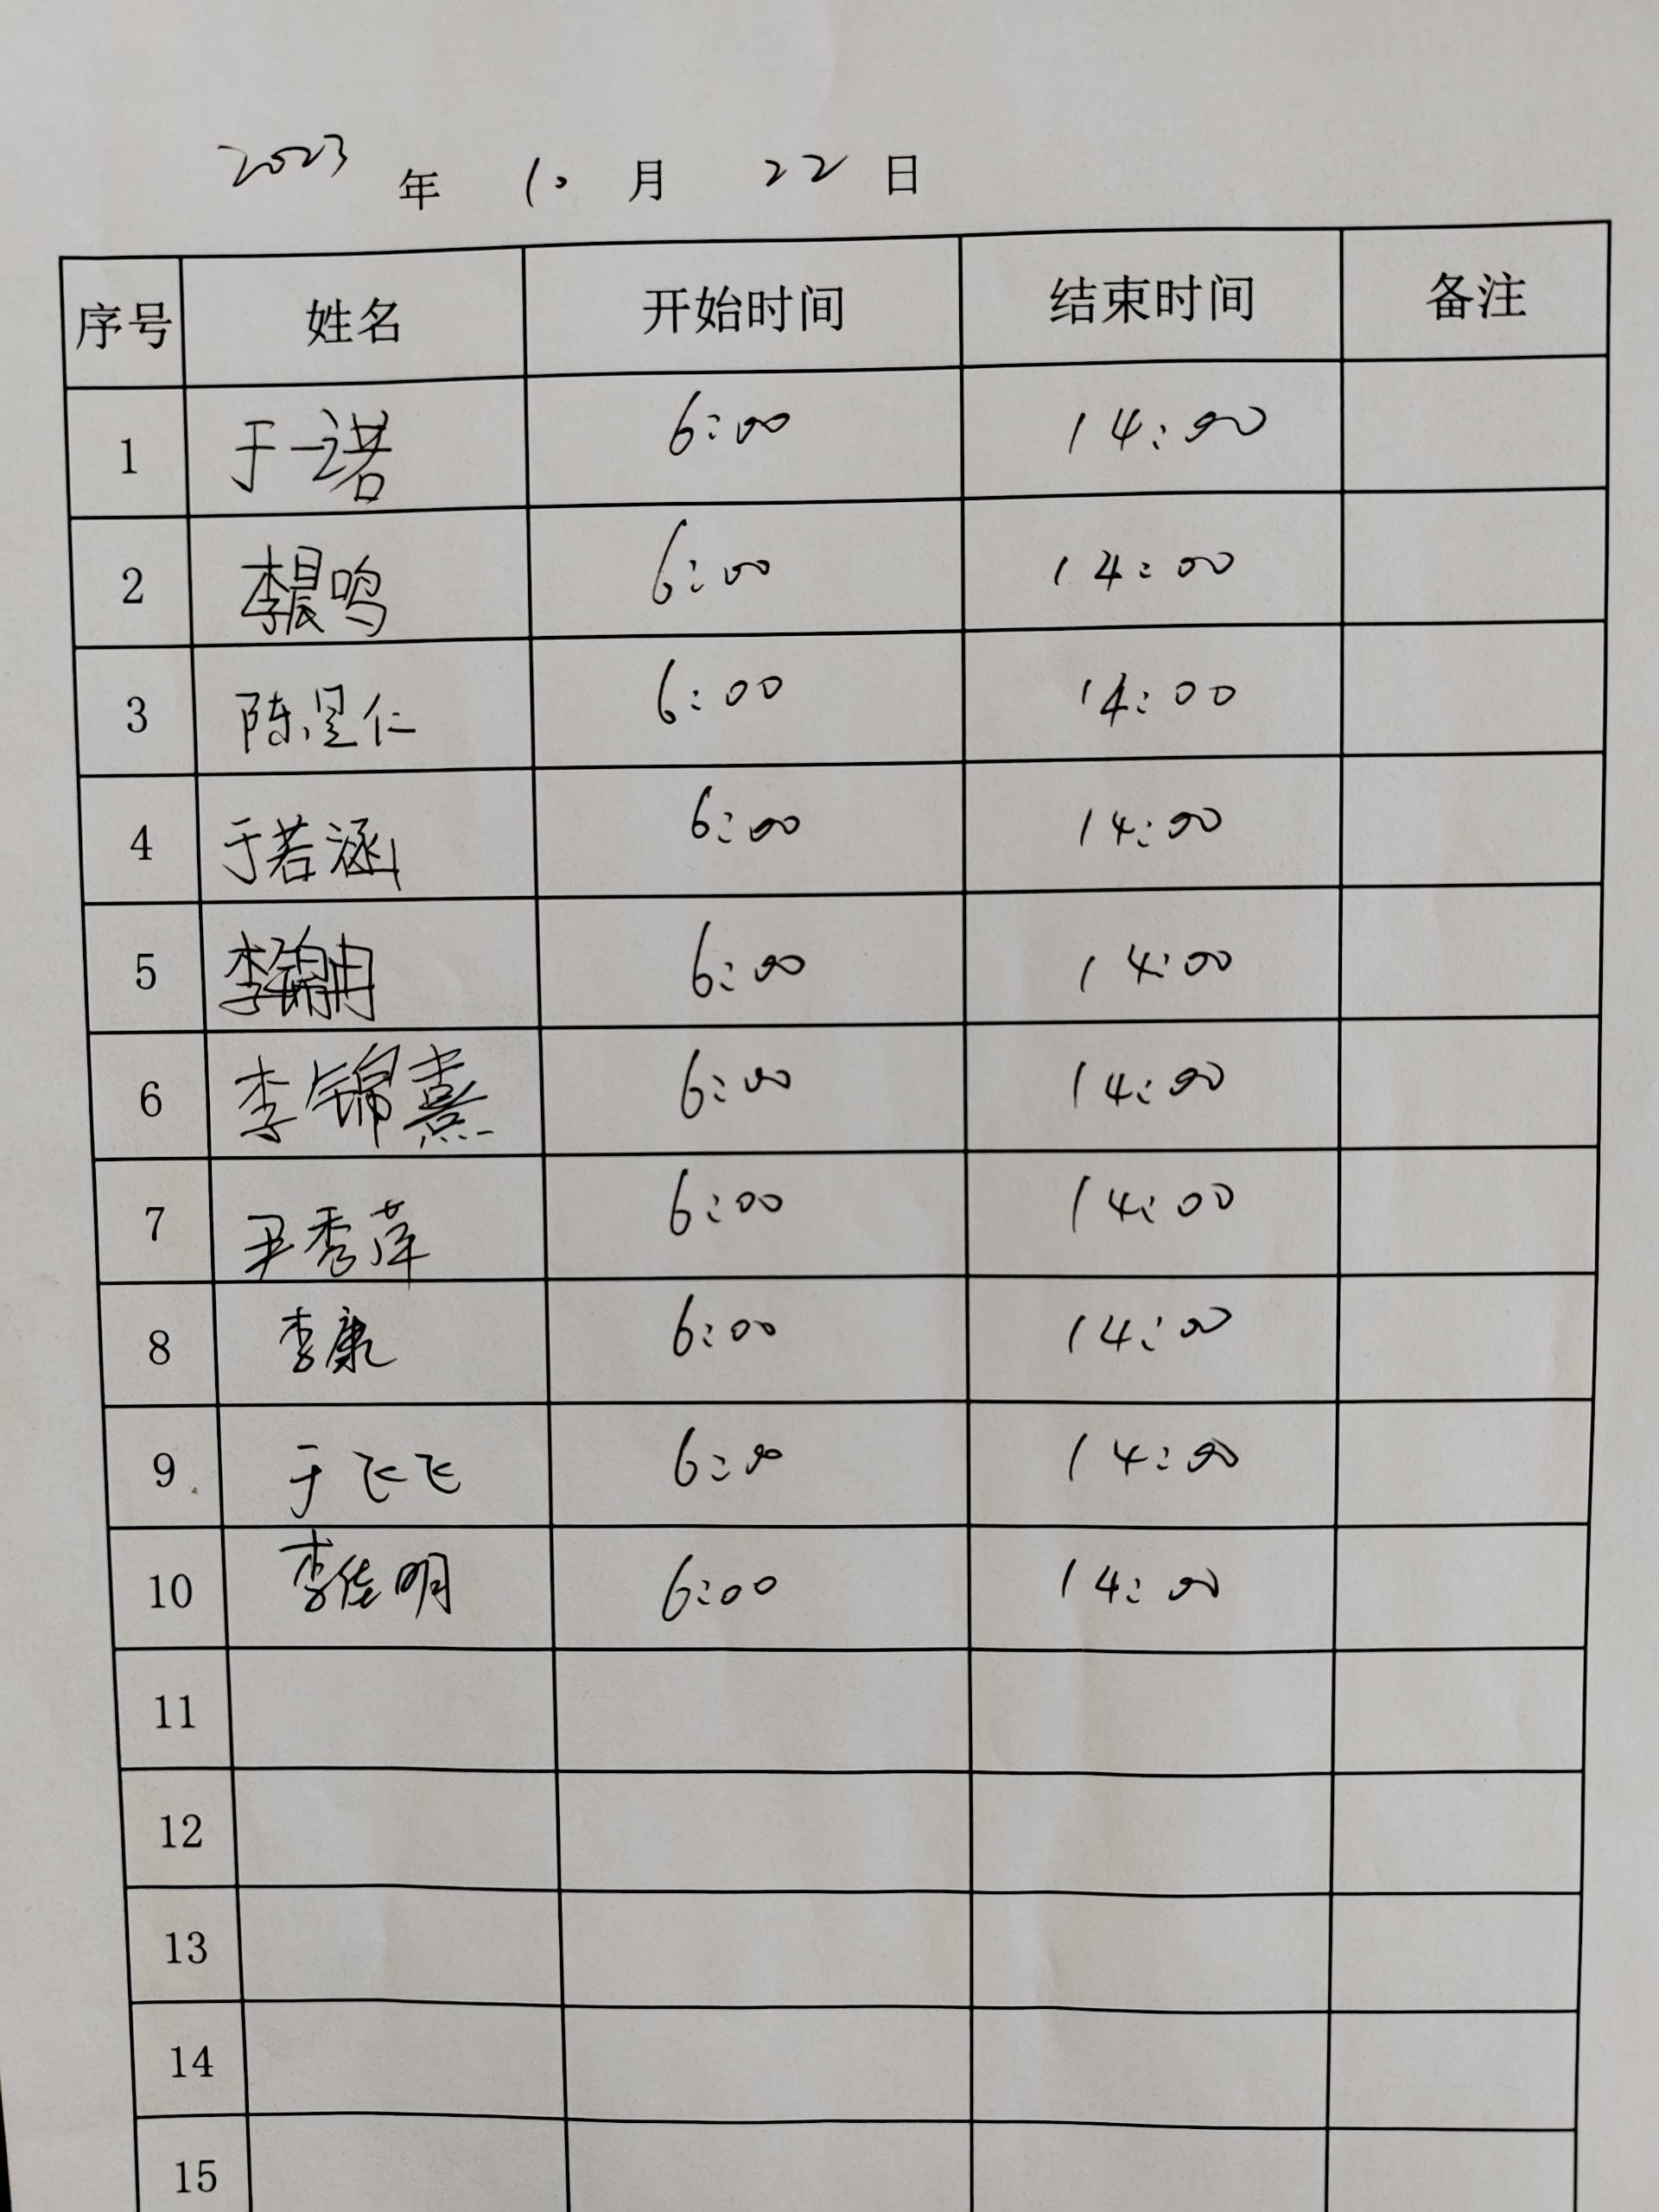 2023 年 10 月 22 日
序号 姓名 开始时间 结束时间 备注
1 于一诺 6:00 14:00
2 李晨鸣 6:00 14:00
3 陈昱仁 6:00 14:00
4 于若涵 6:00 14:00
5 李锦冉 6:00 14:00
6 李锦熹 6:00 14:00
7 尹秀萍 6:00 14:00
8 李康 6:00 14:00
9 于飞飞 6:00 14:00
10 李佳明 6:00 14:00
11
12
13
14
15